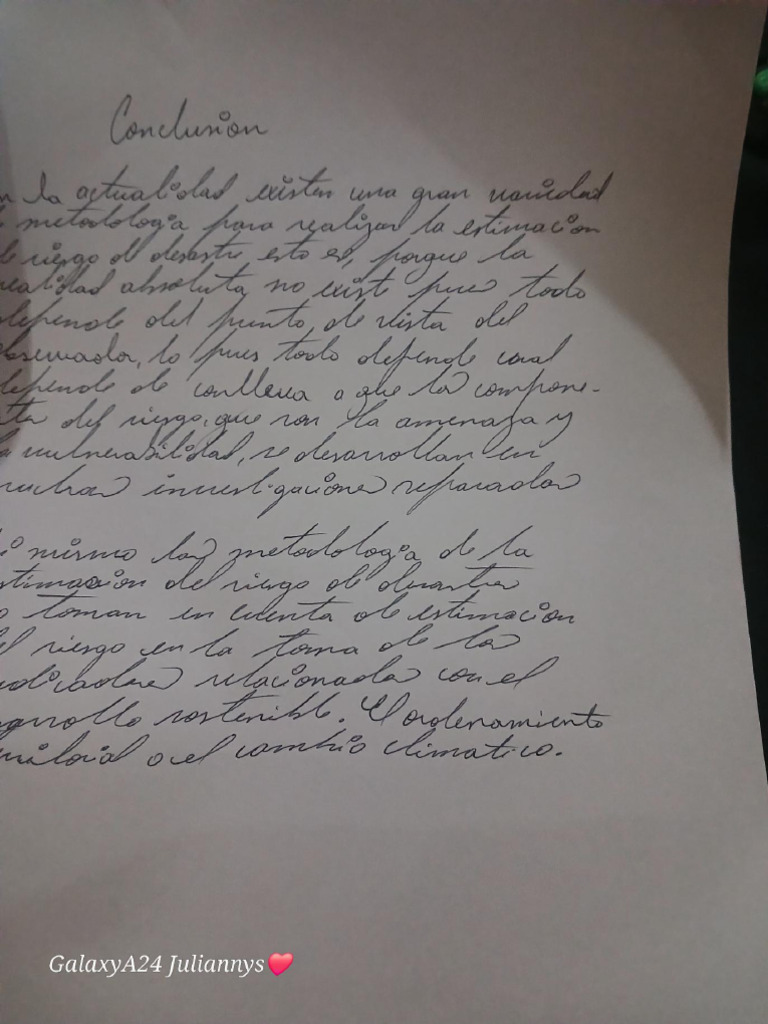 Conclusion
n la actualidad existen una gran variedad
metodologia para realizar la estimacion
de riesgo de desastre, esto es, porque la
realidad absoluta no exist pues todo
depende del punto de vista del
observador, lo pues todo depende cual
depende de conlleva o que la compone-
te del riesgo, que son la amenaza y
la vulnerabilidad, se desarrollan en
muchas investigaciones separadas
i mismo las metodologia de la
stimacion del riesgo de desastres
o toman en cuenta de estimacion
el riesgo en la toma de los
ndicadores relacionada con el
sarrollo sostenible. El ordenamiento
o el cambio climatico.
GalaxyA24 Juliannys❤️